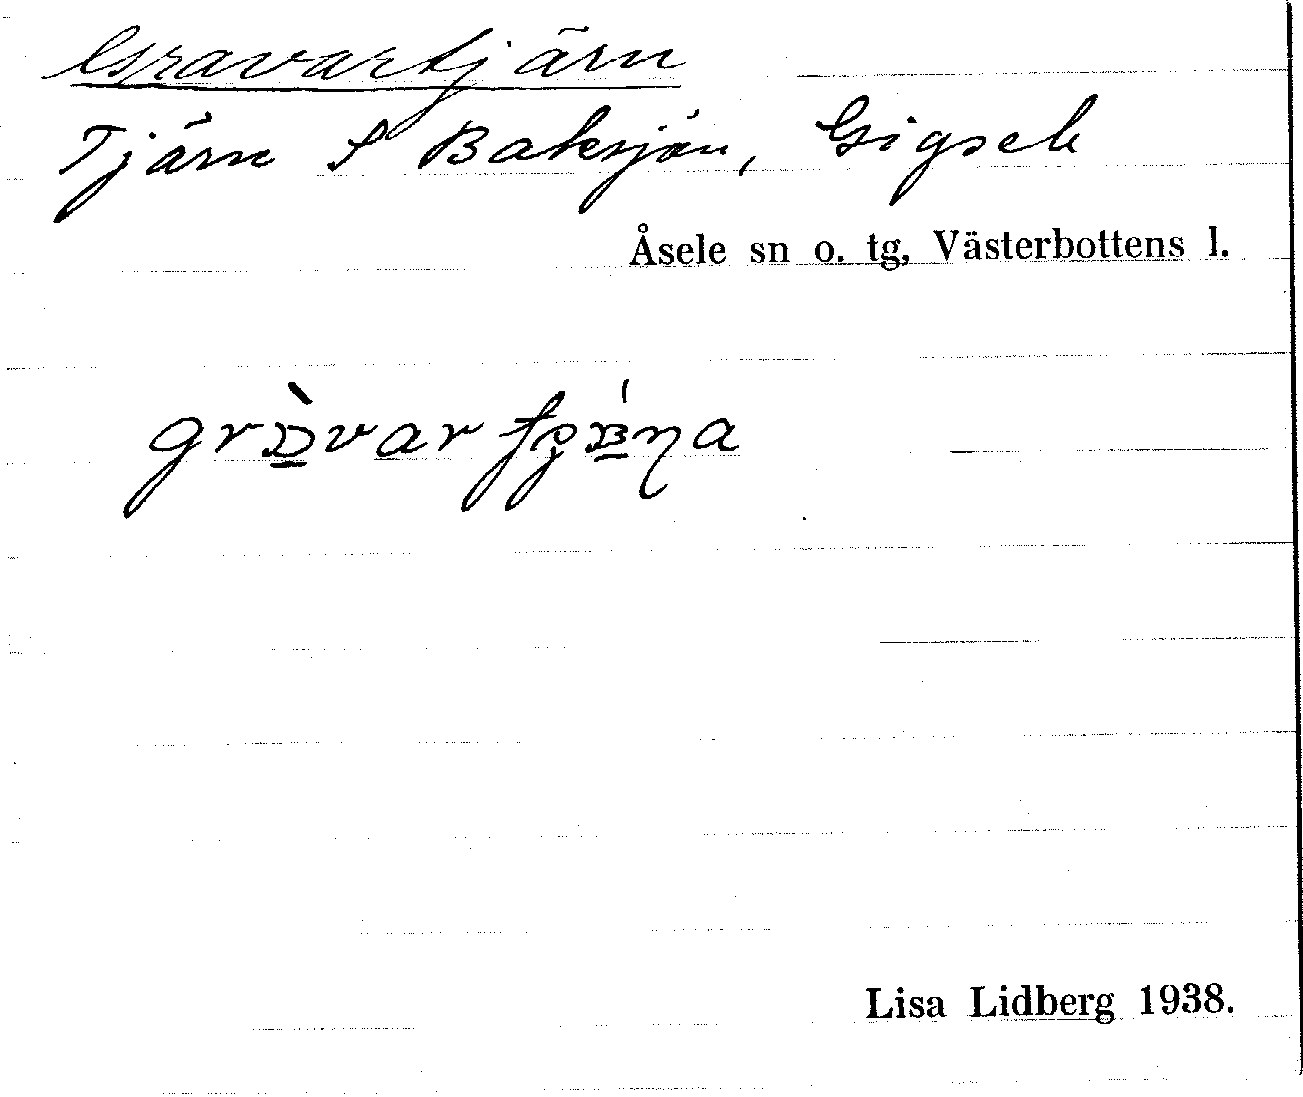 Gravartjärn
Tjärn S Baksjön, Gigsele
Åsele sn o. tg, Västerbottens l.
Lisa Lidberg 1938.